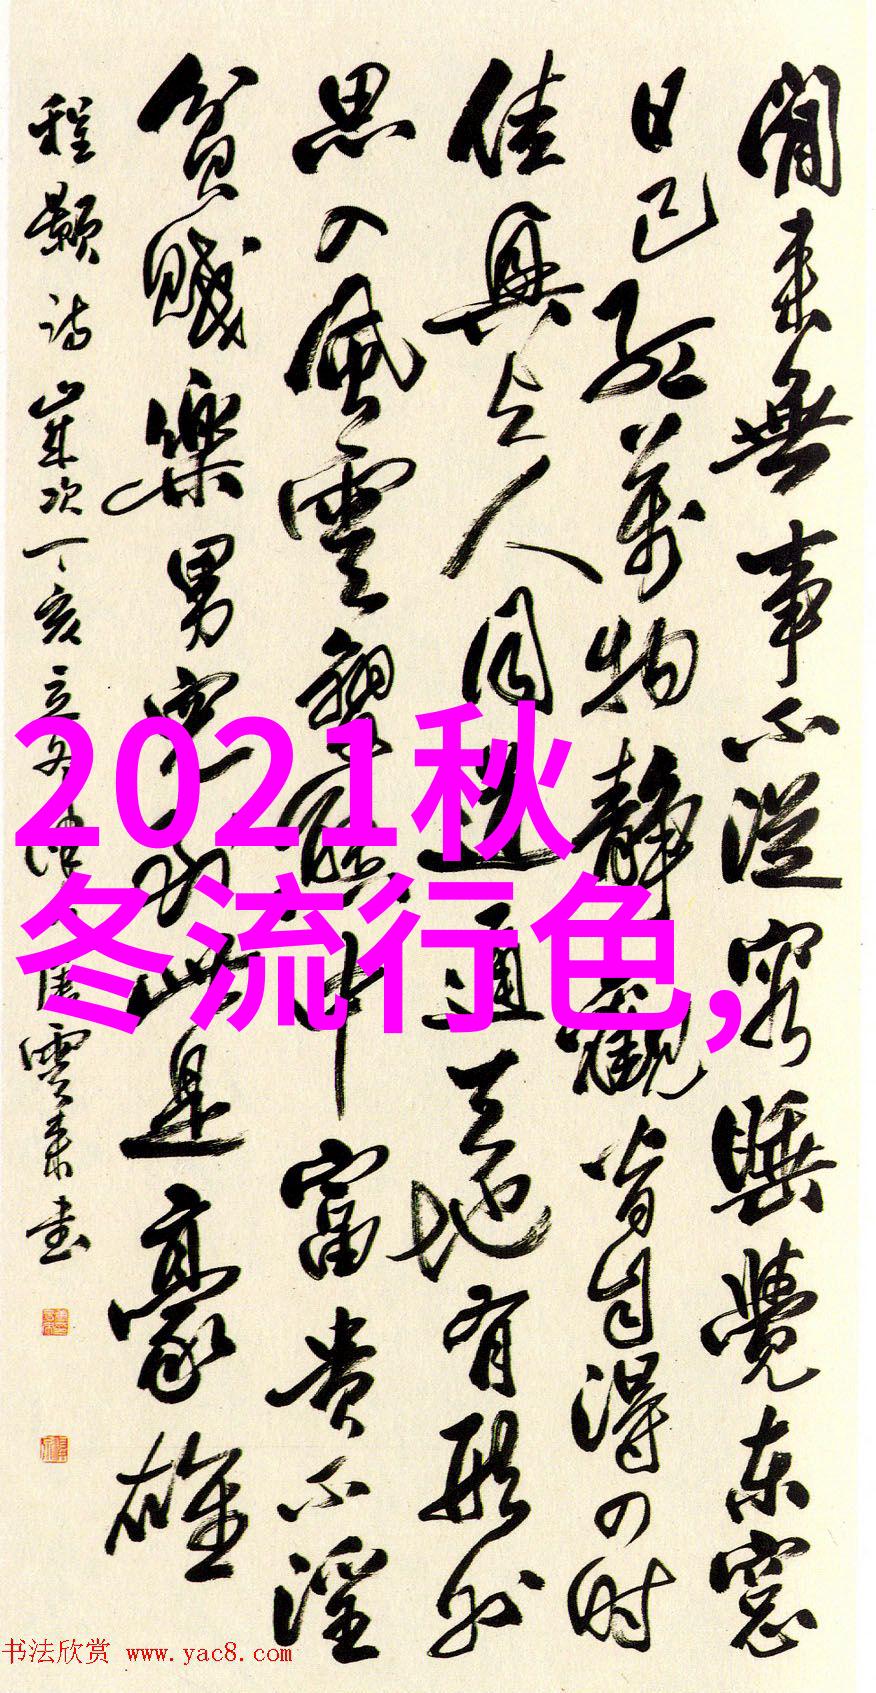 閒来無事不從容睡覺东窓
日已红萬物静觀皆自得四时
佳興与人同道通天地有形外
思入風雲變態中富贵不淫
貧賤樂男兒到此是豪雄
程颢诗歲次丁亥立冬津唐雲来书
2021秋
冬流行色,
书法欣赏 www.yac8.com